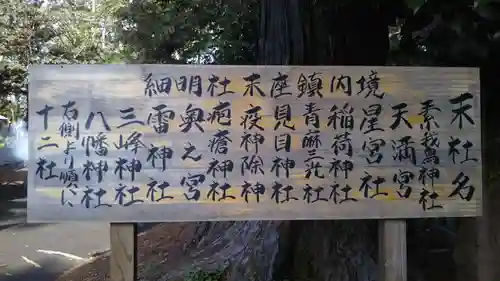 境内鎮座末社明細
末社名
素鵞神社
天満宮
星宮社
稲荷神社
青麻三社
見目神社
疫神除神
疱瘡神社
奥之宮
雷神社
三峰神社
八幡神社
右側より順に
十二社